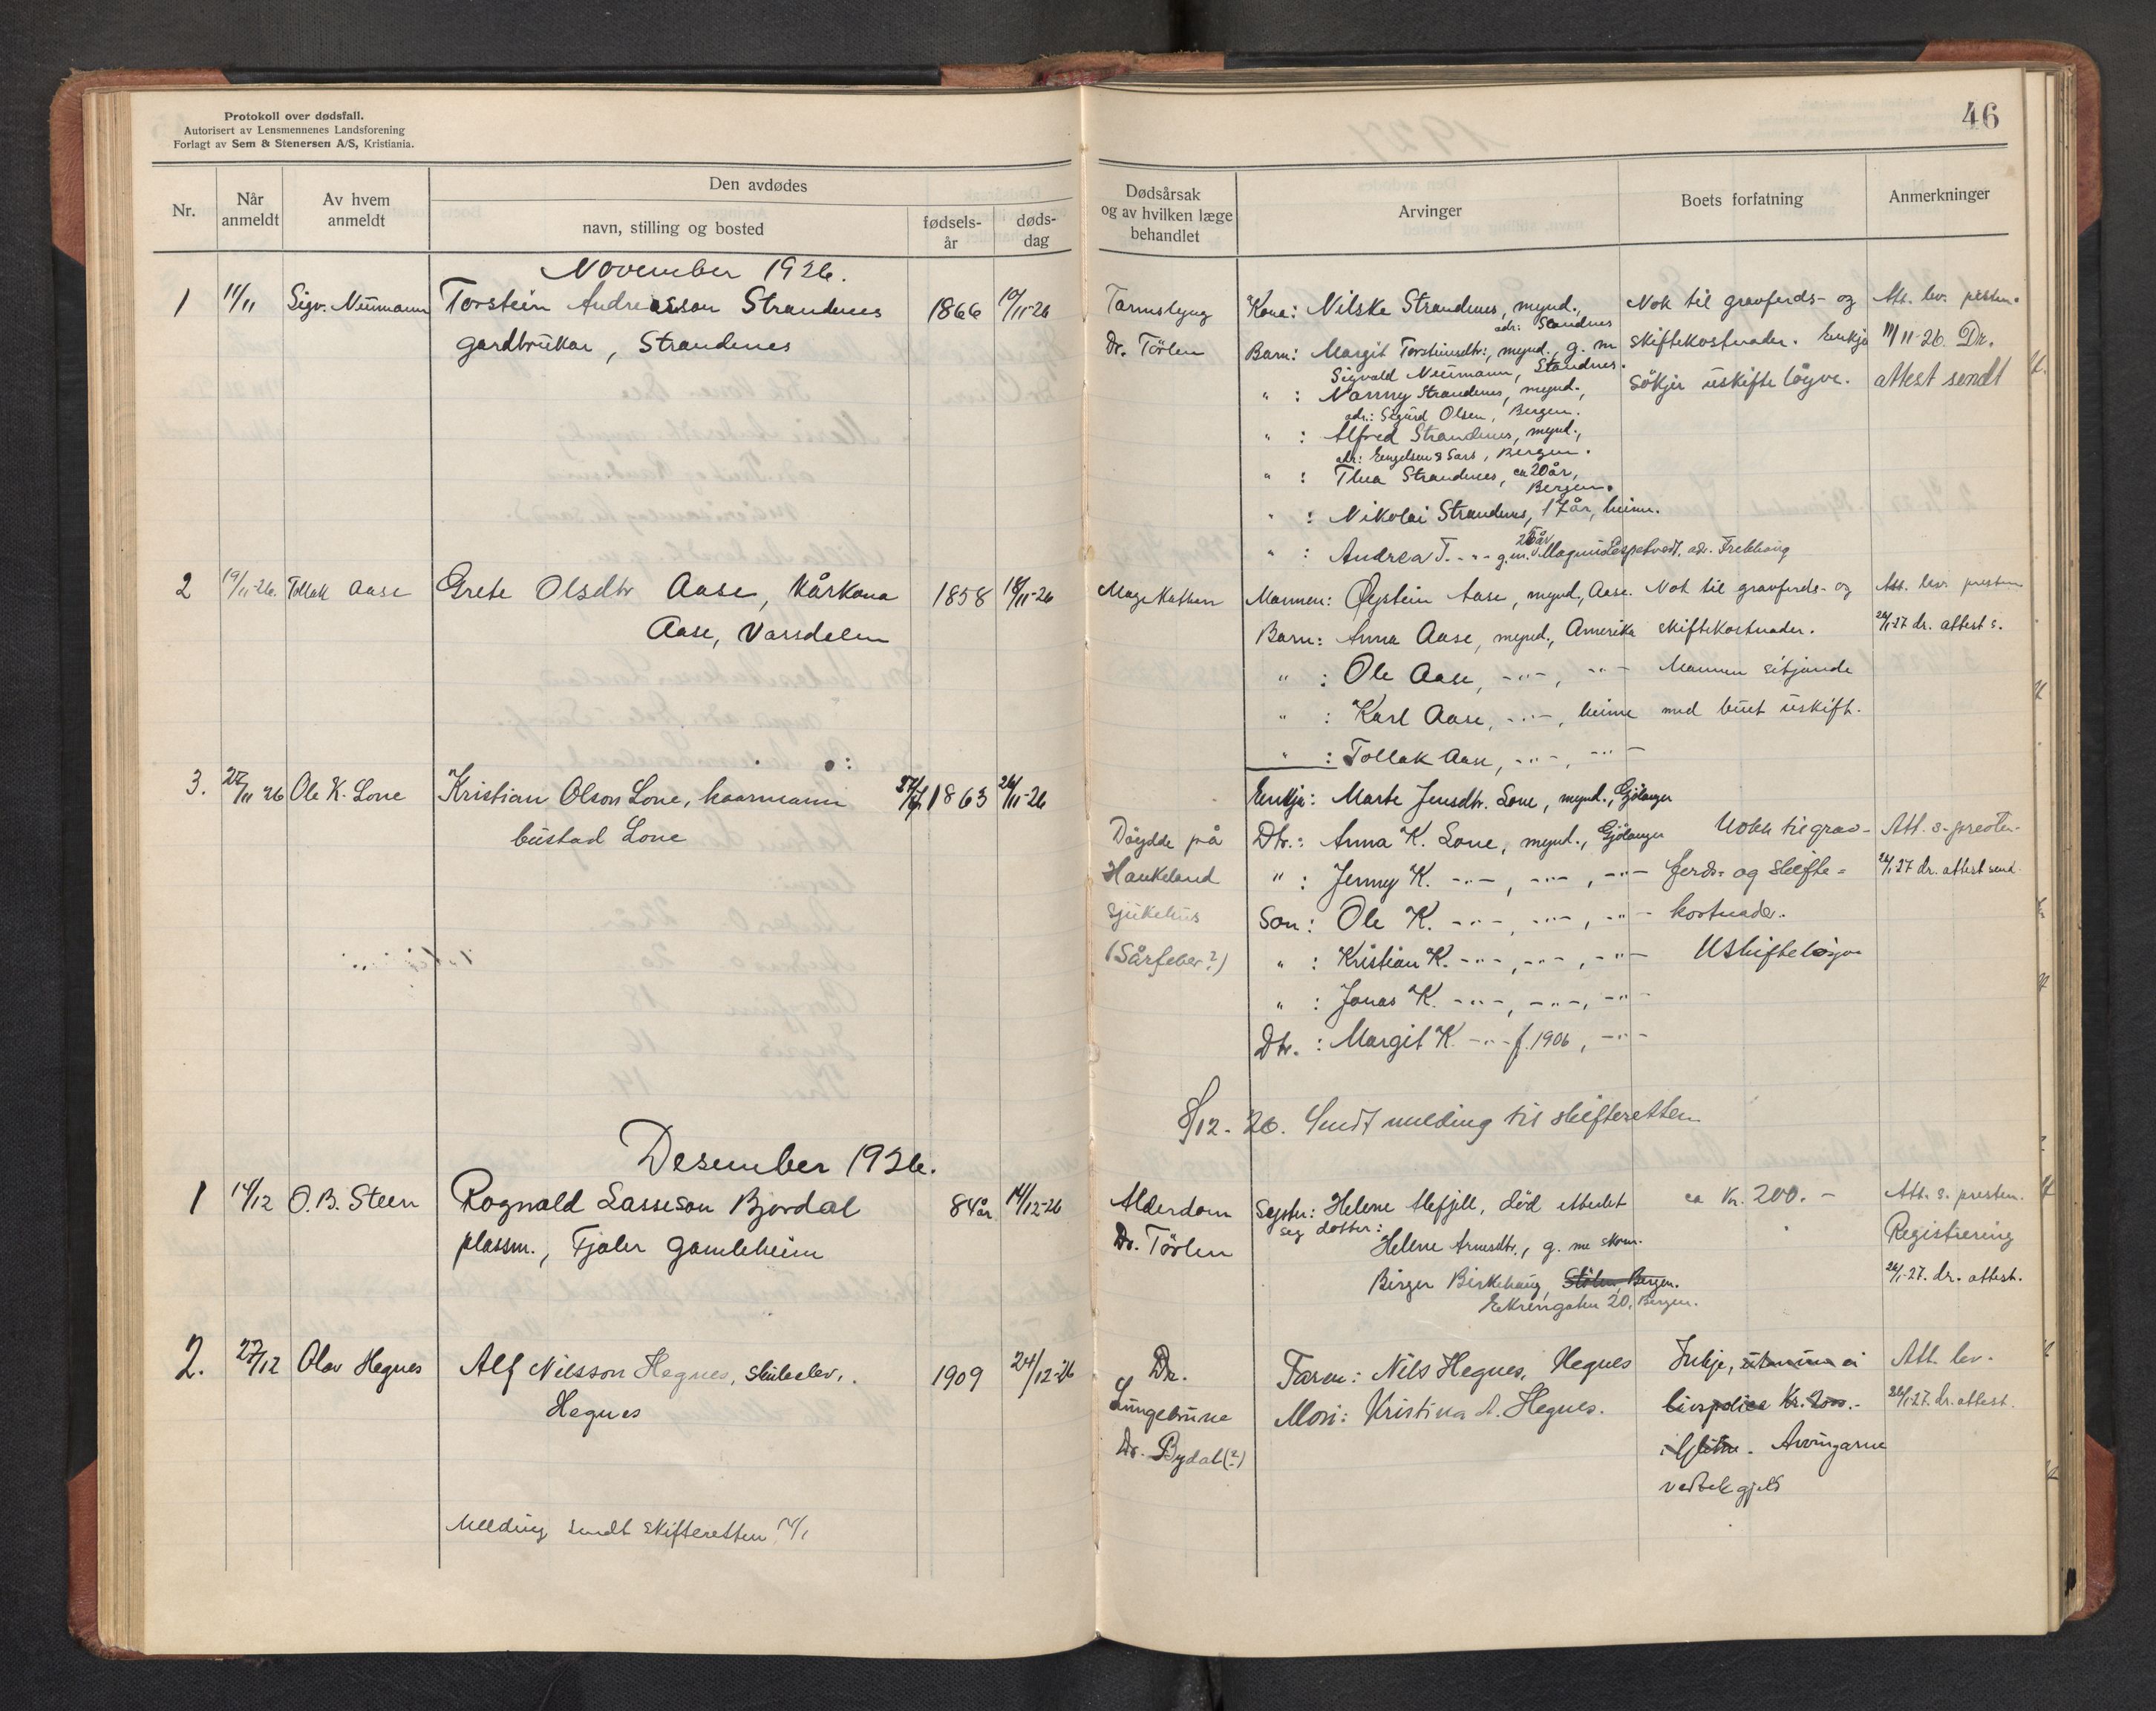 Protokoll over dødsfall.
Autorisert av Lensmennenes Landsforening
Forlagt av Sem & Stenersen A/S, Kristiania.
Nr.
Når anmeldt
Av hvem anmeldt
Den avdødes
navn, stilling og bosted
fødsels-år
døds-dag
November 1926.
1 11/11 Sigv. Neumann Torstein Andreasson Strandenes 1866 10/11-26
gardbrukar, Strandenes
2 19/11-26. Tollak Aase Grete Olsdtr Aase, Kårkona 1858 18/11-26
Aase, Vassdalen
3. 27/11 26 Ole K. Lone Kristian Olson Lone, kaarmann 1863 26/11-26
bustad Lone
Desember 1926.
1 14/12 O. B. Steen Rognald Lasseson Bjordal 84 år 14/12-26
plassm., Fjaler gamleheim
2. 27/12 Olav Hegnes Alf Nilsson Hegnes, skuleelev, 1909 24/12-26
Hegnes
Melding sendt skifteretten 14/1
46
Dødsårsak
og av hvilken læge
behandlet
Arvinger
Boets forfatning
Anmerkninger
Tarmslyng Kona: Nilske Strandenes, mynd., Nok til gravferds- og Att. lev. presten.
adr: Standnes
Dr. Törlen Barn: Margit Torsteinsdtr., mynd., g. m skiftekostnader. Enkja 11/11-26. Dr.
Sigvald Neumann, Standnes.
" : Nanny Strandenes, mynd., søkjer uskifteløyve. attest sendt
adr.: Sigurd Olsen, Bergen.
" : Alfred Strandenes, mynd.,
adr: Engelsen & Sars, Bergen.
" : Thea Strandenes, ca 20 år,
Bergen.
" : Nikolai Strandenes, 17 år, heime.
26 år
" : Andrea T. -"- g.m. Magnus
Magekatarr Mannen: Øystein Aase, mynd., Aase. Nok til gravferds- og Att. lev. presten
Barn: Anna Aase, mynd., Amerika skiftekostnader. 26/1-27 dr. attest s.
" : Ole Aase, -"-, -"- Mannen sitjande
" : Karl Aase, -"-, heime med buet uskift.
" : Tollak Aase, -"-, -"-
Enkja: Marte Jensdtr. Lone, mynd., Gjølanger
Døydde på Dtr.: Anna K. Lone, mynd., Gjølanger Nokk til grav- Att. s. presten.
Haukeland " : Jenny K. -"-, -"-, -"- ferds- og skifte- 26/1-27 dr. attest send.
sjukehus Son: Ole K. -"-, -"-, -"- kostnader.
(Sårfeber?) " : Kristian K. -"-, -"-, -"- Uskifteløyve
" : Jonas K. -"-, -"-, -"-
Dtr. : Margit K. -"- f. 1906, -"-
8/12. 26. Sendt melding til skifteretten
Alderdom Syster: Helene Alefjell, död etterlet ca Kr. 200. - Att. s. presten.
seg dotter:
Dr. Törlen Helene Arnesdtr., g. me skom. Registrering
Birger Birkehaug, Stölen, Bergen. 26/1-27. dr. attest.
Ekrengaten 20, Bergen.
Dr. Faren: Nils Hegnes, Hegnes Inkje, ei Att. lev.
Lungebrune Mori: Kristina A. Hegnes. livspolice Kr. 26/1 27. dr. attest.
Dr. Bydal (?) Arvingarne
vedtek gjeld